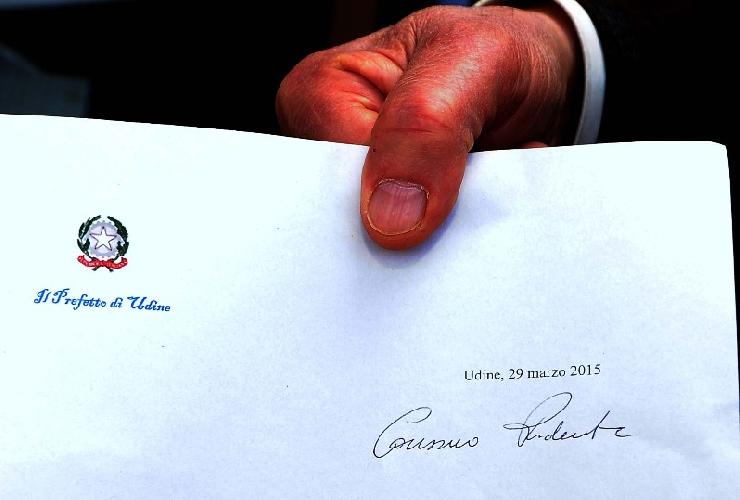 Il Prefetto di Udine
Udine, 29 marzo 2015
Carissimo Presidente